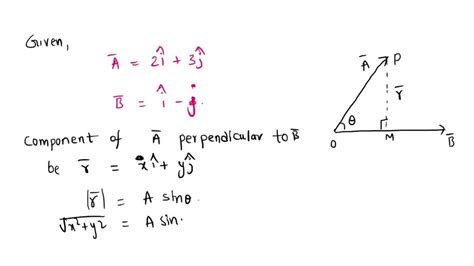 Given,
A̅ = 2î + 3ĵ
B̅ = î - ĵ.
Component of A̅ perpendicular to B̅
be r̅ = xî + yĵ
|r̅| = A sinθ.
√x²+y² = A sin.
A̅
P
r̅
θ
O
M
B̅